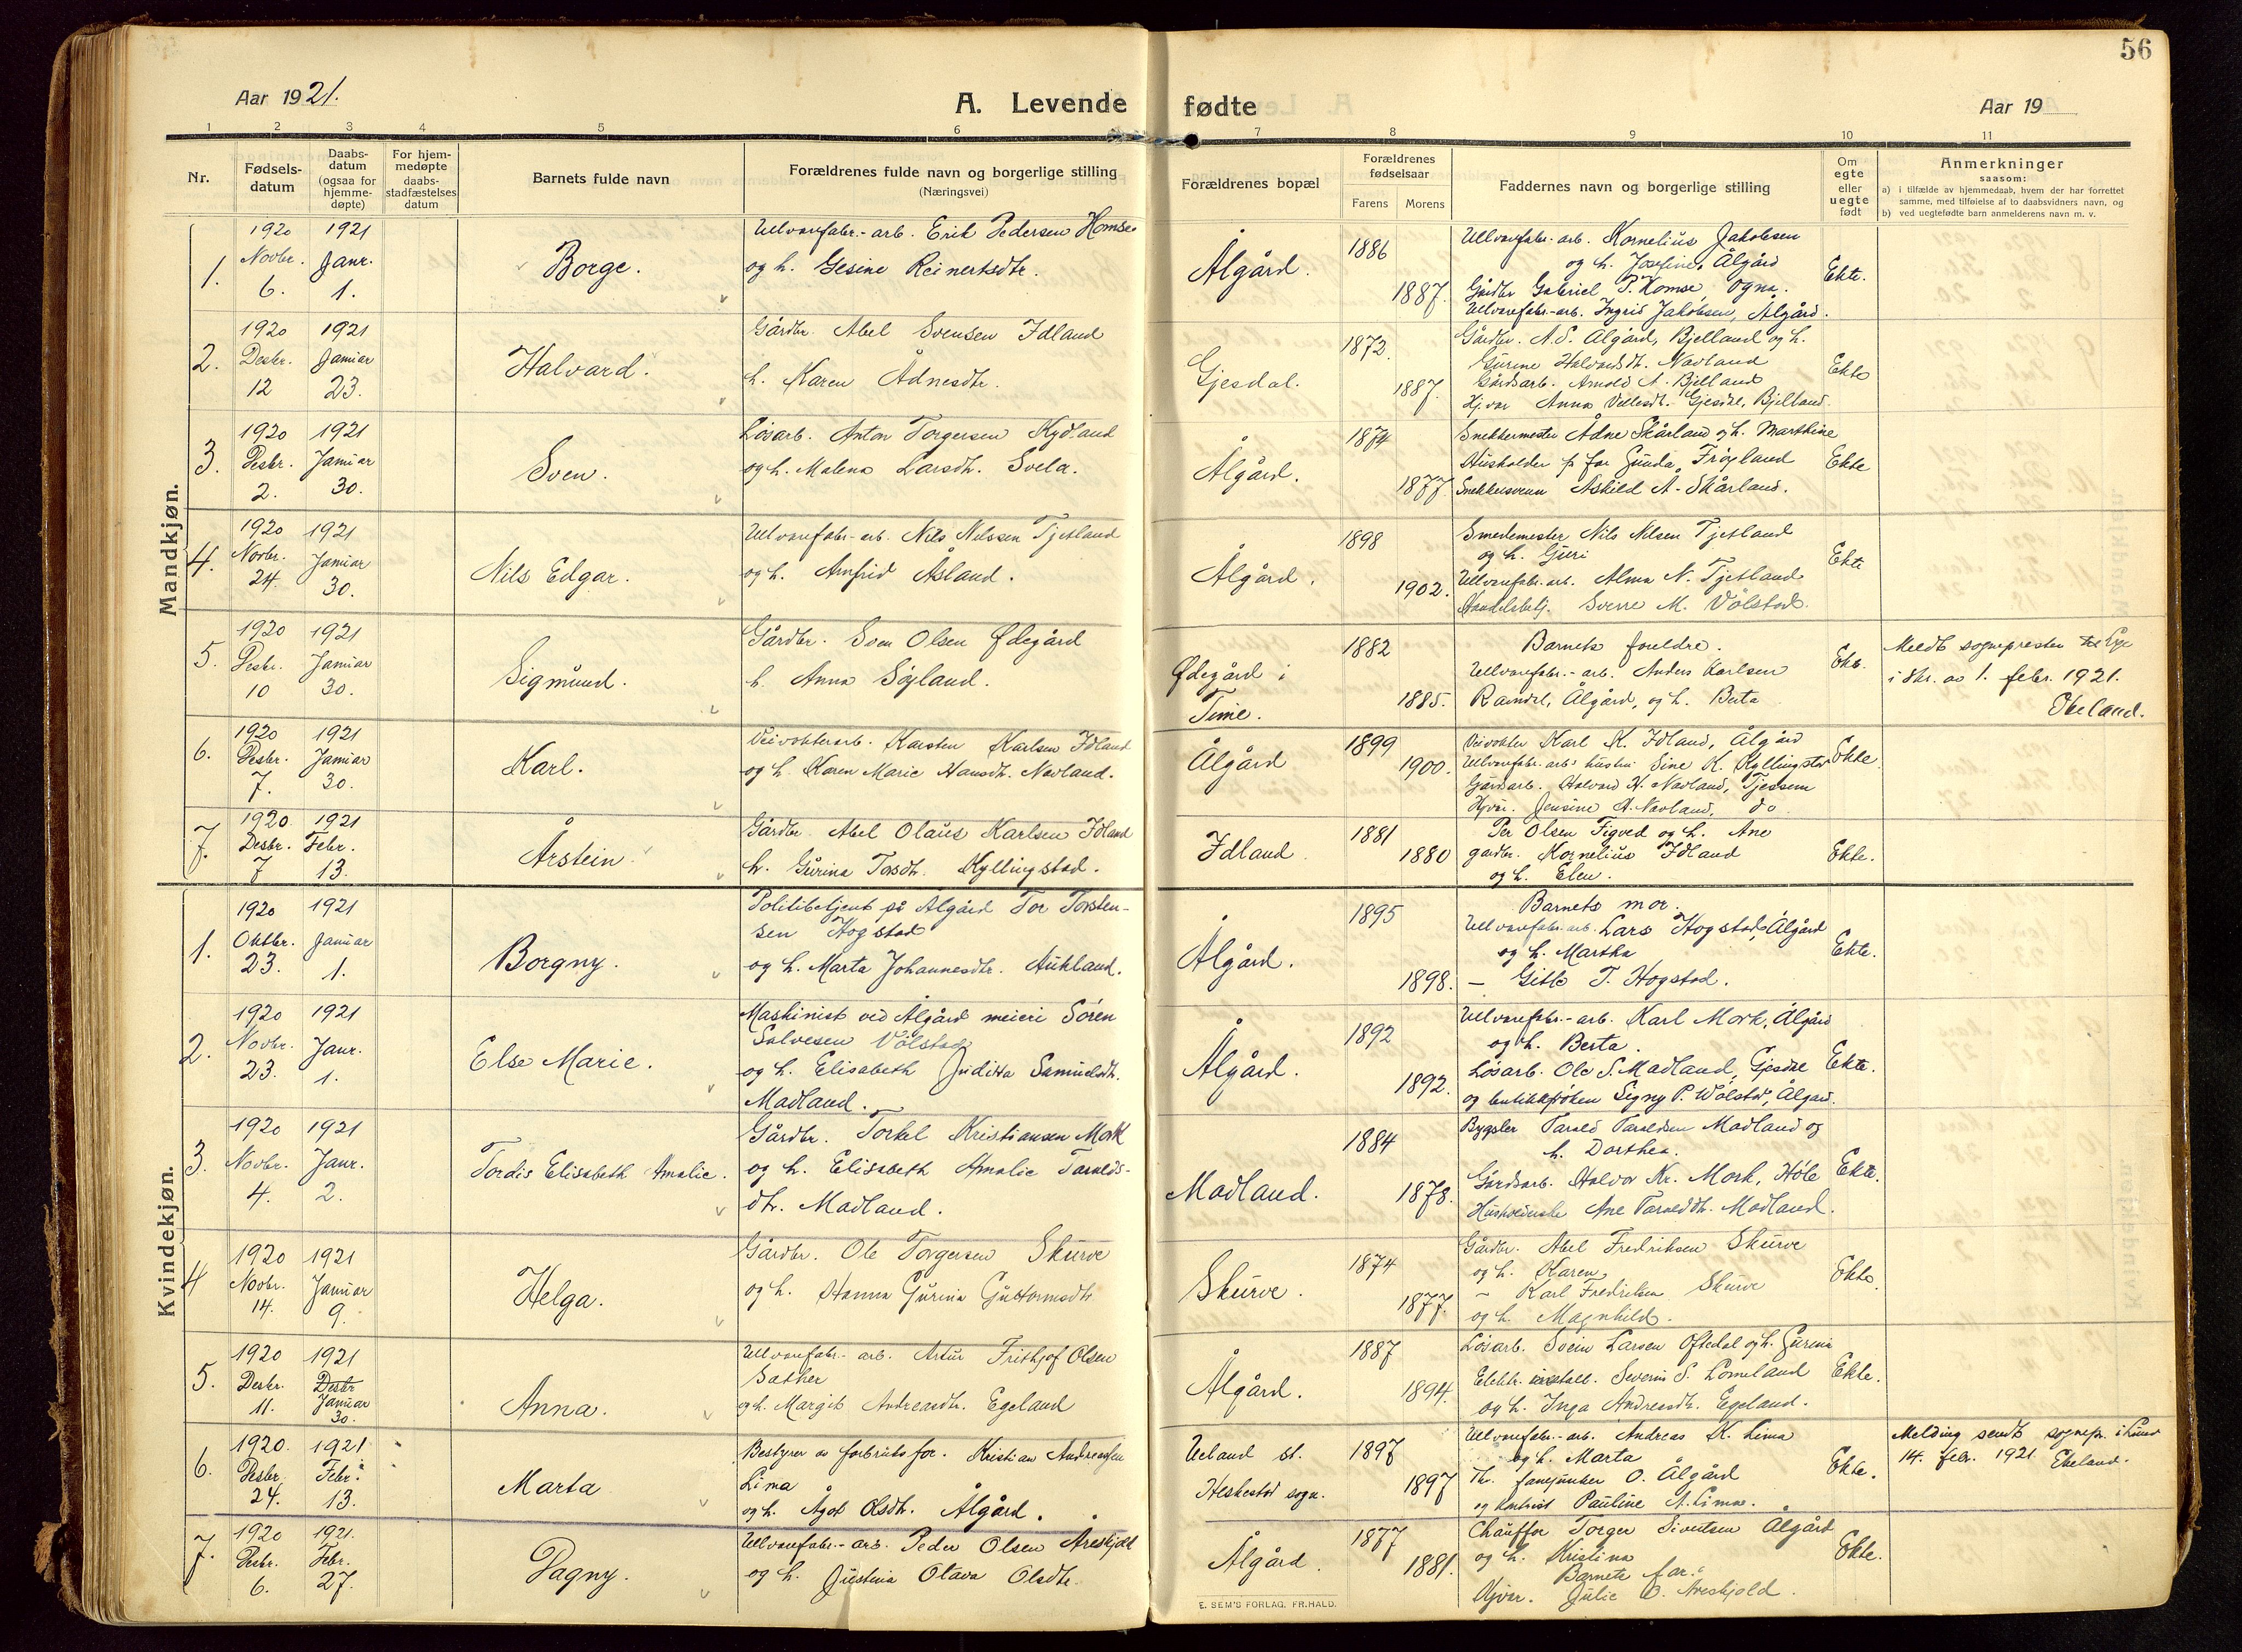 56
Aar 1921.
A. Levende fødte
Aar 19
1 2 3 4 5 6 7 8 9 10 11
Nr.
Fødsels-
datum
Daabs-
datum
(ogsaa for
hjemme-
døpte)
For hjem-
medøpte
daabs-
stadfæstelses
datum
Barnets fulde navn
Forældrenes fulde navn og borgerlige stilling
(Næringsvei)
Forældrenes bopæl
Forældrenes
fødselsaar
Farens Morens
Faddernes navn og borgerlige stilling
Om
egte
eller
uegte
født
Anmerkninger
saasom:
a) i tilfælde av hjemmedaab, hvem der har forrettet
samme, med tilføielse af to daabsvidners navn, og
b) ved uegtefødte barn anmelderens navn m. v.
Mandkjøn.
1.
1920
Novbr.
6.
1921
Janr.
1.
Borge.
Ullvarefabr.-arb. Erik Pedersen Homse
og h. Gesine Reinertsdtr.
Ålgård.
1886
1887.
Ullvarefabr.-arb. Kornelius Jakobsen
og h. Josefine, Ålgård
Gårdbr Gabriel P. Homse Ogna.
Ullvarefabr.-arb. Ingrid Jakobsen, Ålgård.
Ekte.
2.
1920
Desbr.
12
1921
Januar
23.
Halvard.
Gårdbr. Abel Svensen Idland
h. Karen Ådnesdtr.
Gjesdal.
1872.
1887.
Gårdbr. A. S. Ålgård, Bjelland og h.
Gurine Halvardsdt. Navland
Gårdsarb. Arnold A. Bjelland
Hj.var Anna Gjesdal, Bjelland.
Ekte
3.
1920
Desbr.
2.
1921
Januar
30.
Sven.
Løsarb. Anton Torgersen Kydland
og h. Malena Larsdtr. Svela.
Ålgård.
1874
1877.
Snekkermester Ådne Skårland og h. Marthine
Husholder for far Gunda Frøyland
Snekkersvenn Askild A. Skårland.
Ekte
4.
1920
Novbr.
24.
1921
Januar
30.
Nils Edgar.
Ullvarefabr-arb. Nils Nilssen Tjetland
og h. Arnfrid Åsland.
Ålgård.
1898
1902.
Smedemester Nils Nilsen Tjetland
og h. Guri
Ullvarefabr.arb. Alma N. Tjetland
Handelsbetj. Sverre M. Vølstad.
Ekte
5.
1920
Desbr.
10
1921
Januar
30.
Sigmund.
Gårdbr. Sven Olsen Ødegård
h. Anna Søyland.
Ødegård i
Time.
1882
1885.
Barnets foreldre.
Ullvarefabr.-arb. Anders Karlsen
Ravndal, Ålgård, og h. Berta
Ekte.
Meldt sognepresten
i skr. av 1. febr. 1921.
Ekeland.
6.
1920
Desbr.
7.
1921
Januar
30.
Karl.
Veivokterarb. Karsten Karlsen Idland
og h. Karen Marie Hansdtr. Navland.
Ålgård
1899
1900.
Veivokter Karl K. Idland, Ålgård
Ullvarefabr.-arb's hustru Sine K. Kyllingstad
Gårdsarb. Halvard H. Navland, Tjessem
Hjvær. Jensine H. Navland, do
Ekte.
7.
1920.
Desbr.
7
1921
Febr.
13.
Årstein.
Gårdbr. Abel Olaus Karlsen Idland
h. Gurina Torsdtr. Kyllingstad.
Idland
1881
1880
Per Olsen Figved og h. Ane
gardbr. Kornelius Idland
og h. Elen.
Ekte.
Kvindekjøn.
1.
1920
Oktbr.
23.
1921
Januar
1.
Borgny.
Politibetjent på Ålgård Tor Torsten-
sen Hogstad
og h. Marta Johannesdtr. Aukland.
Ålgård.
1895
1898.
Barnets mor.
Ullvarefabr-arb. Lars Hogstad, Ålgård
og h. Martha
— Gitle T. Hogstad.
Ekte.
2.
1920
Novbr.
23.
1921
Janr.
1.
Else Marie.
Maskinist ved Ålgård meieri Sören
Salvesen Vølstad
og h. Elisabeth Juditta Samuelsdtr.
Madland.
Ålgård.
1892
1892.
Ullvarefabr.-arb. Karl Mork, Ålgård
og h. Berta.
Løsarb. Ole S. Madland, Gjesdal
og butikkfrøken Signy P. Wølstad, Ålgård.
Ekte.
3.
1920
Novbr.
4.
1921
Janr.
2.
Tordis Elisabeth Amalie.
Gårdbr. Torkel Kristiansen Mork
og h. Elisabeth Amalie Taralds-
dtr. Madland.
Madland.
1884
1878.
Bygsler Tarald Taraldsen Madland og
h. Dorthea.
Gårdsarb. Halvor Kr. Mork, Høle
Husholderske Ane Taralddtr. Madland.
Ekte.
4
1920
Novbr.
14.
1921
Januar
9.
Helga.
Gårdbr. Ole Torgersen Skurve
og h. Hanna Gurina Guttormsdtr.
Skurve.
1874
1877.
Gårdbr. Abel Fredriksen Skurve
og h. Karen
— Karl Fredriksen Skurve
og h. Magnhild.
Ekte.
5.
1920
Desbr.
11.
1921
Desbr
Januar
30.
Anna.
Ullvarefabr.-arb. Artur Fritjof Olsen
Sæther
og h. Margit Andreasdtr. Egeland
Ålgård.
1887
1894.
Løsarb. Svein Larsen Oftedal og h. Gurine
Elektr. install. Severin S. Lomeland
og h. Inga Andreasdtr. Egeland.
Ekte.
6.
1920.
Desbr.
24.
1921
Febr.
13.
Marta
Bestyrer av forbruksfor. Kristian Andreassen
Lima
og h. Ågot Olsdtr. Ålgård.
Ueland st.
Heskestad sogn.
1897
1897
Ullvarefabr.-arb. Andreas K. Lima
og h. Marta
Th. fanejunker O. Ålgård
og Pauline A. Lima.
Ekte.
Melding sendt sognepr. i Lund
14. febr. 1921. Ekeland.
7.
1920
Desbr.
6.
1921.
Febr.
27.
Dagny.
Ullvarefabr.-arb. Peder Olsen Areskjold
og h. Justina Olava Olsdtr.
Ålgård.
1877
1881.
Chauffør Torger Sivertsen Ålgård
og h. Kristina
Barnets far.
Hjvær. Julie O. Areskjold.
Ekte.
E. SEM'S FORLAG, FR.HALD.